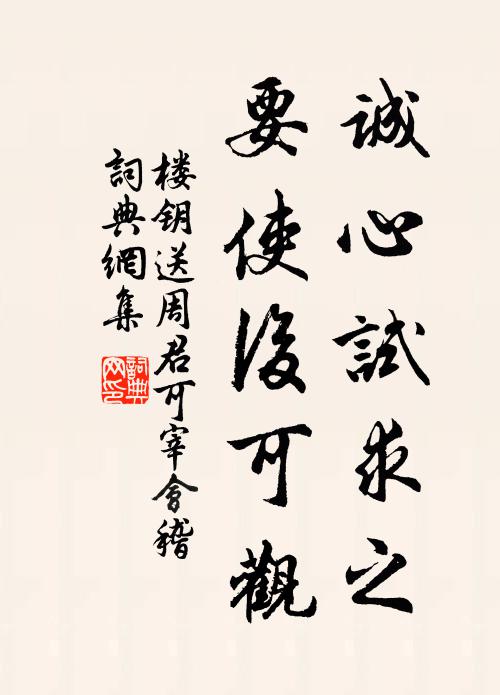 誠心試求之
要使後可觀
楼钥送周君可宰會稽
詞典網集
詞典
网印